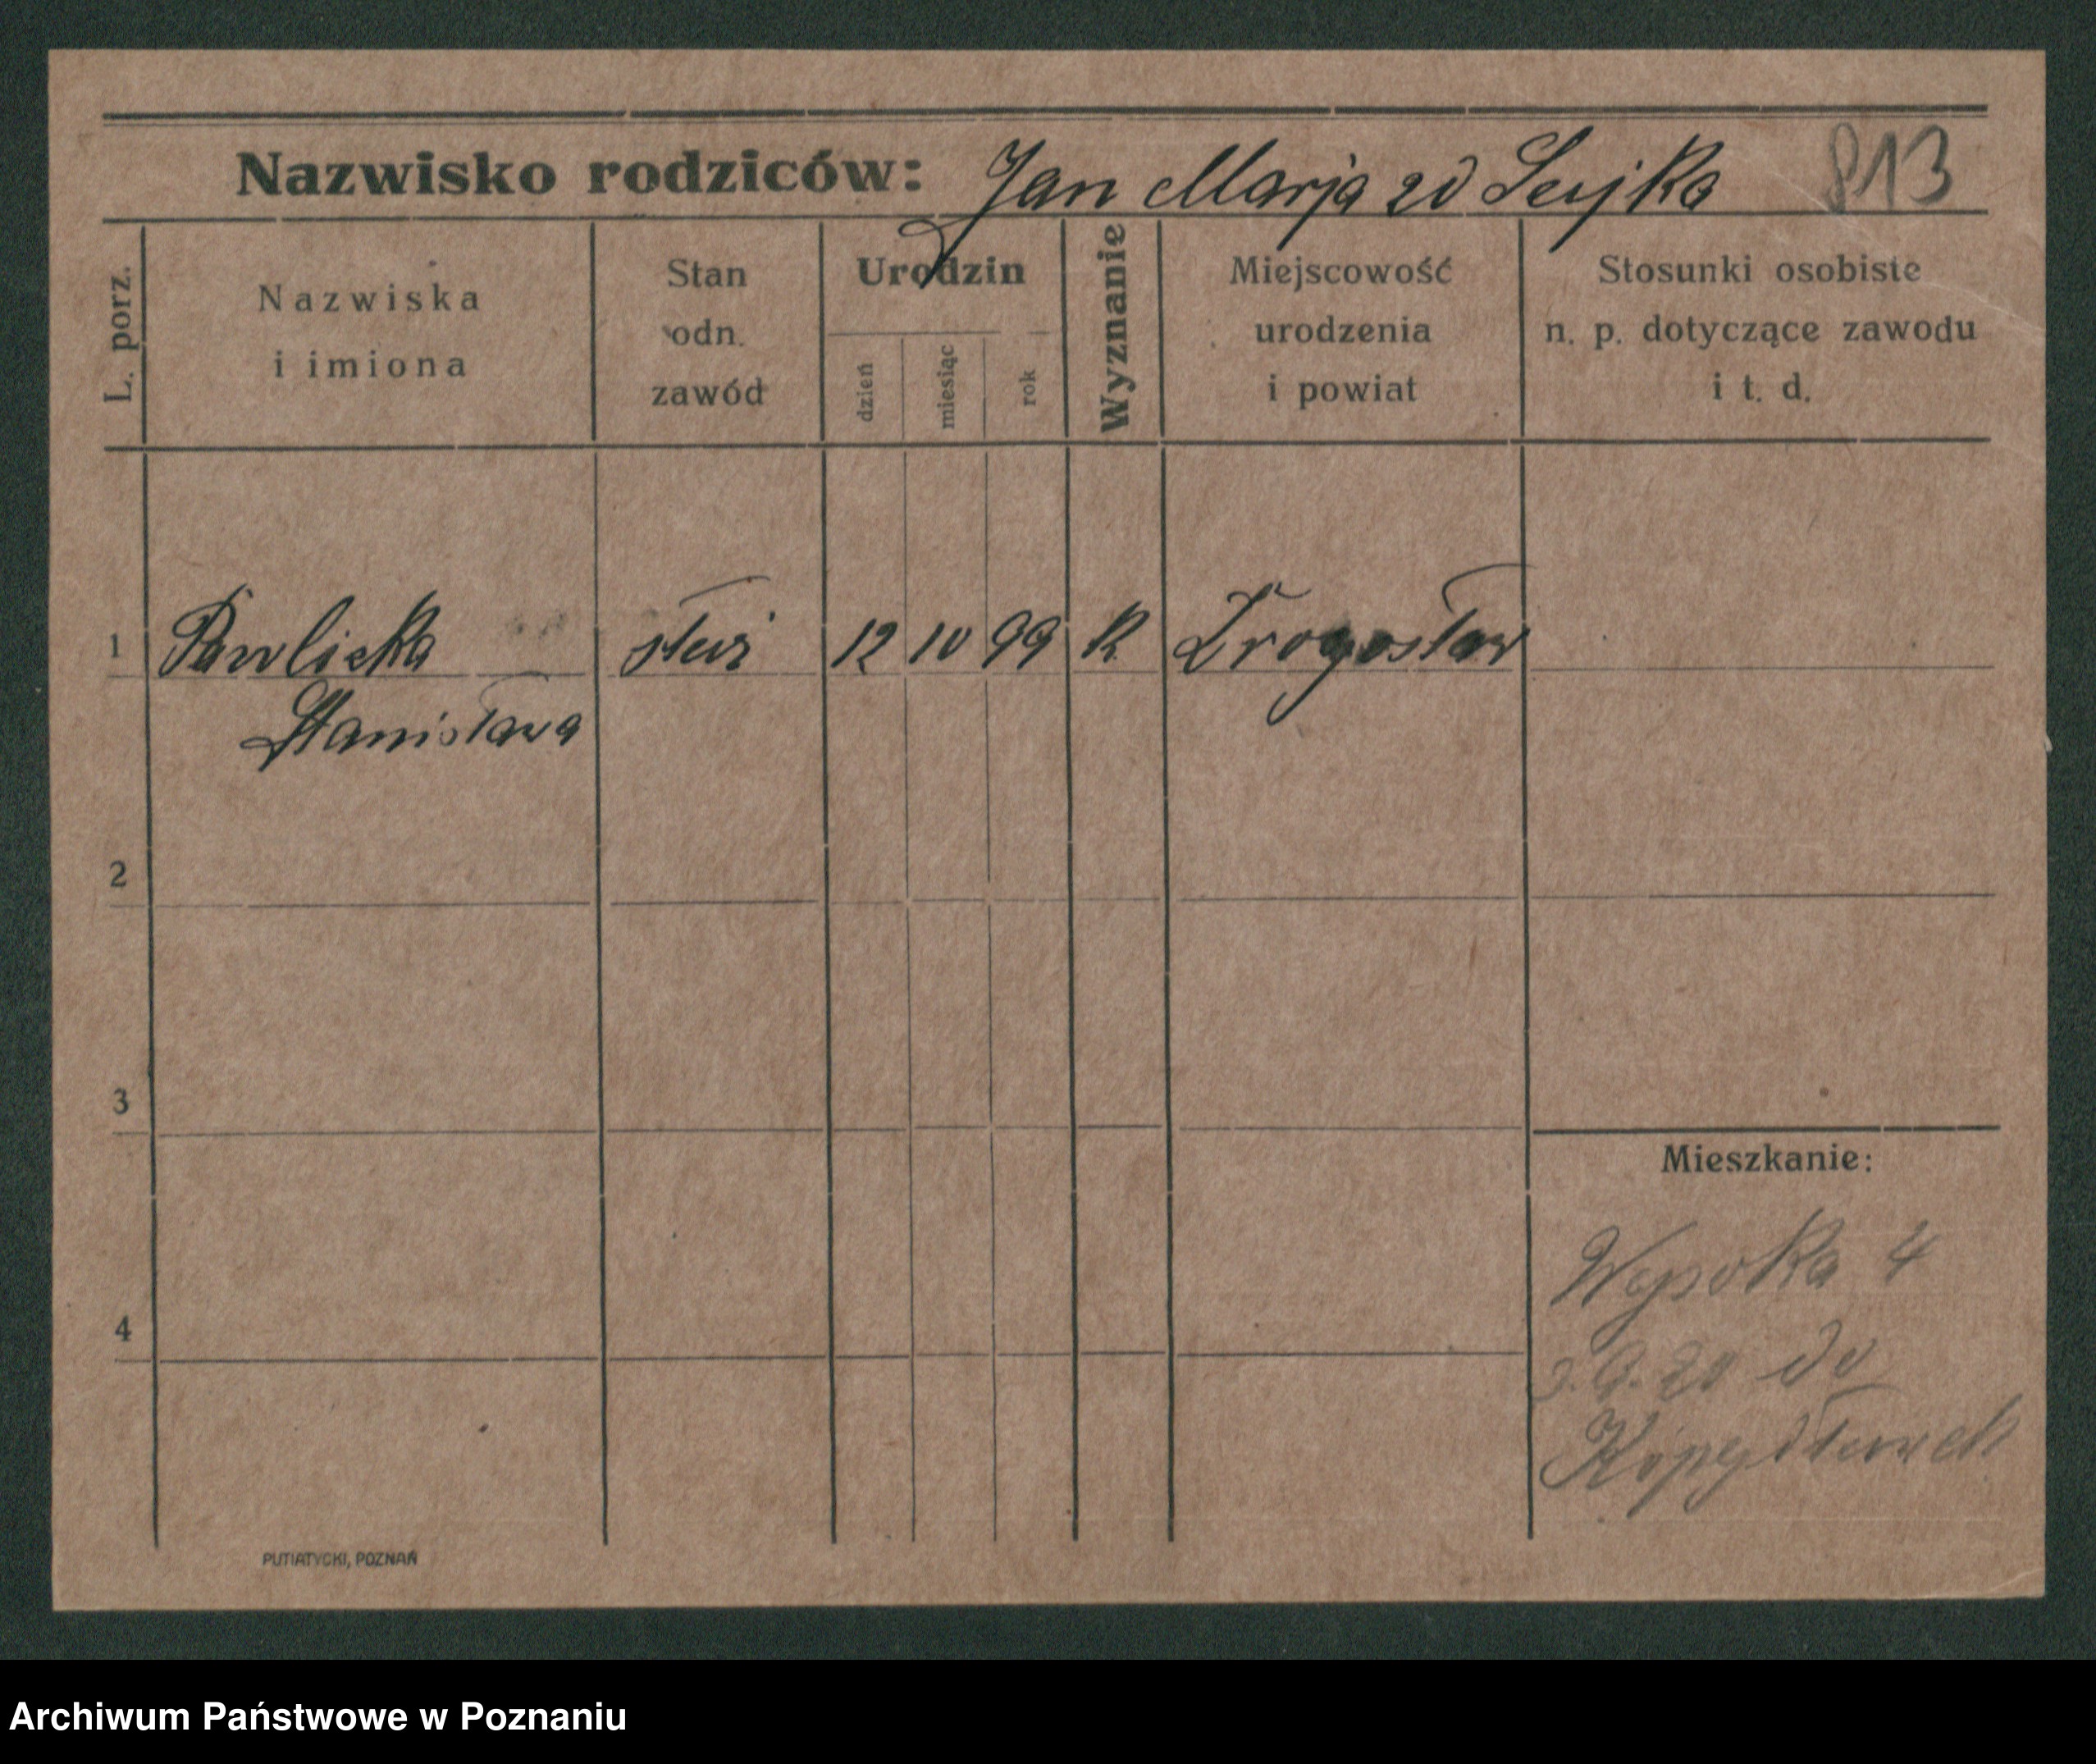 Nazwisko rodziców: Jan Marja zd Sujka 813
L. porz.
Nazwiska
i imiona
Stan
odn.
zawód
Urodzin
dzień
miesiąc
rok
Wyznanie
Miejscowość
urodzenia
i powiat
Stosunki osobiste
n. p. dotyczące zawodu
i t. d.
1 Pawlicka służ 12 10 99 R
Stanisława
2
3
Mieszkanie:
Wysoka 4
3.9.20 do
4
PUTIATYCKI, POZNAŃ
Archiwum Państwowe w Poznaniu